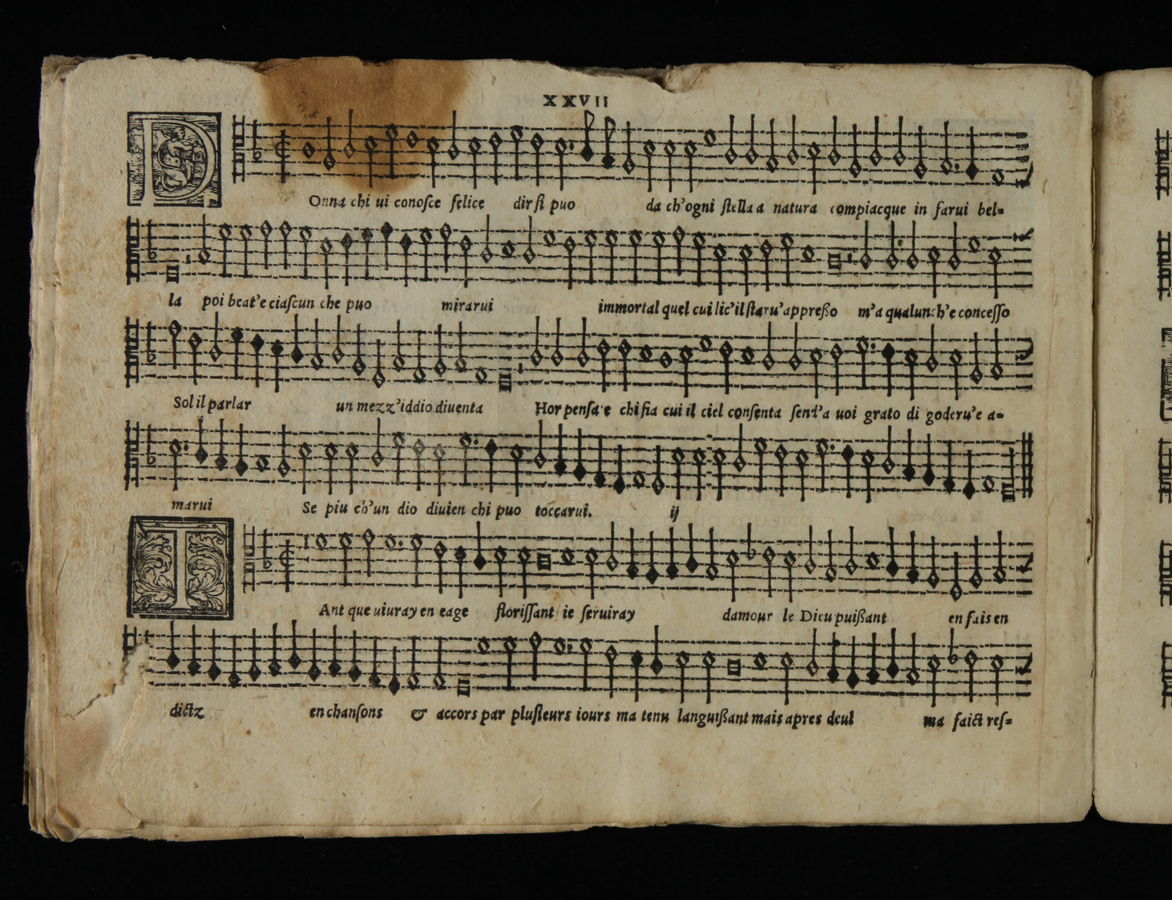 XXVII
DOnna chi ui conosce felice dir si puo da ch'ogni stella a natura compiacque in farui bel=
la poi beat'e ciascun che puo mirarui immortal quel cui lic'il staru'appreßo m'a qualunch'e concesso
Sol il parlar un mezz'iddio diuenta Hor pensa'e chi fia cui il ciel consenta send'a uoi grato di goderu'e a=
marui Se piu ch'un dio diuien chi puo toccarui. ij
TAnt que uiuray en eage florissant ie seruiray damour le Dieu puißant en fais en
dictz en chansons & accors par plusieurs iours ma tenu languißant mais apres deul ma faict res=